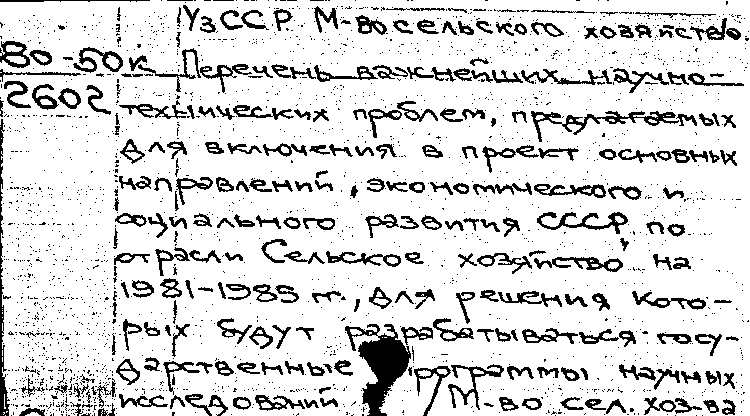 УзССР М-во сельского хозяйства.
80-50к Перечень важнейших научно-
2602 технических проблем, предлагаемых
для включения в проект основных
направлений, экономического и
социального развития СССР по
отрасли "Сельское хозяйство" на
1981-1985 гг., для решения кото-
рых будут разрабатываться госу-
дарственные программы научных
исследований / М-во сел. хоз-ва